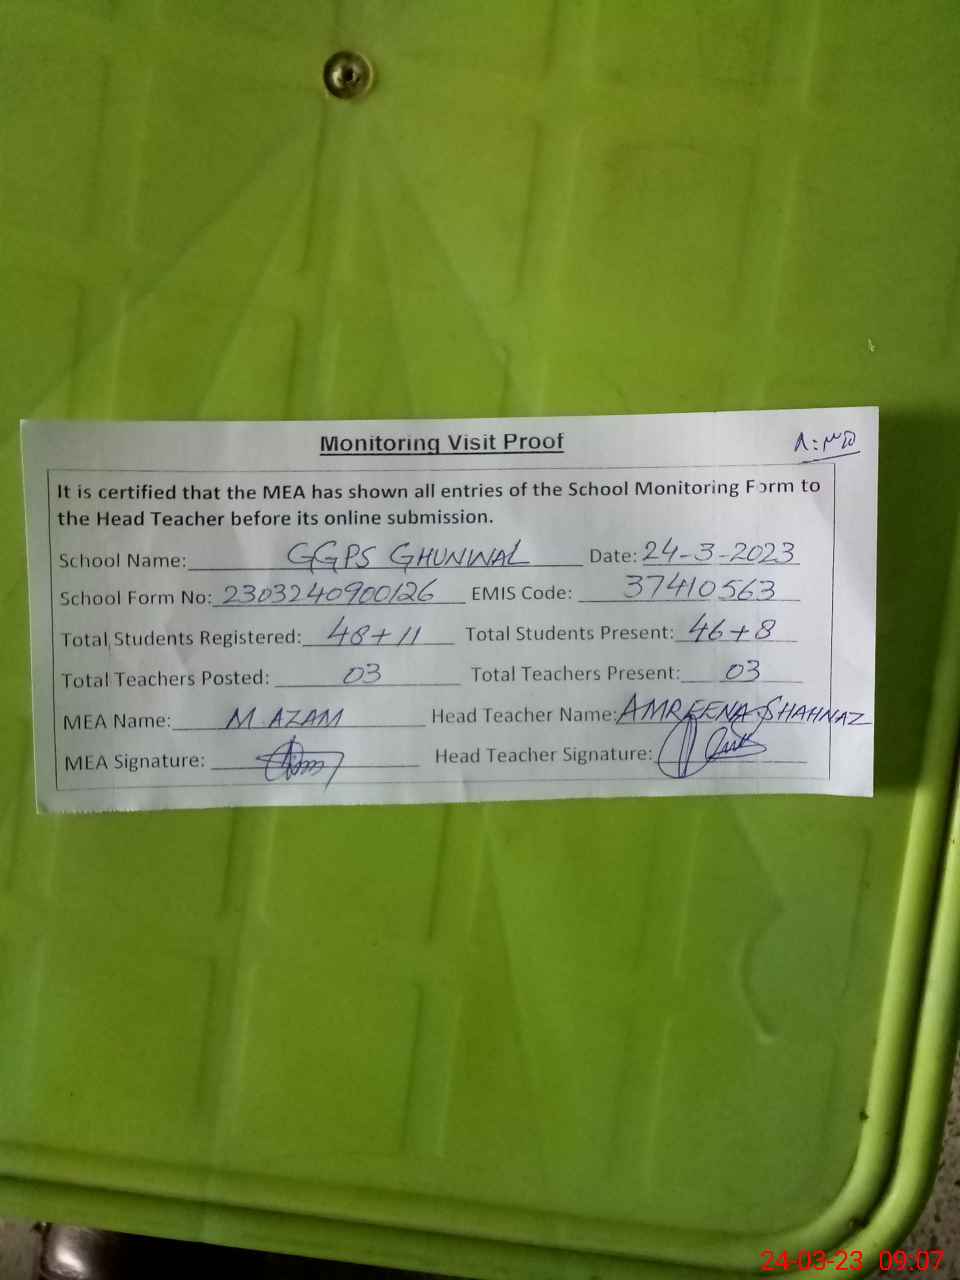 Monitoring Visit Proof
It is certified that the MEA has shown all entries of the School Monitoring Form to
the Head Teacher before its online submission.
School Name: GGPS GHUNWAL Date: 24-3-2023
School Form No: 230324090026 EMIS Code: 37410563
Total Students Registered: 48+11 Total Students Present: 46+8
Total Teachers Posted: 03 Total Teachers Present: 03
MEA Name: M. AZAM Head Teacher Name: AMREENA SHAHNAZ
MEA Signature: Head Teacher Signature:
24-03-23 09:07